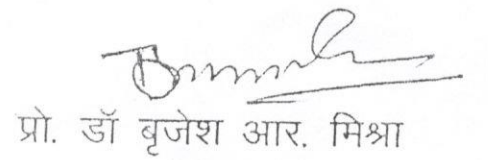 प्रो. डॉ बृजेश आर. मिश्रा